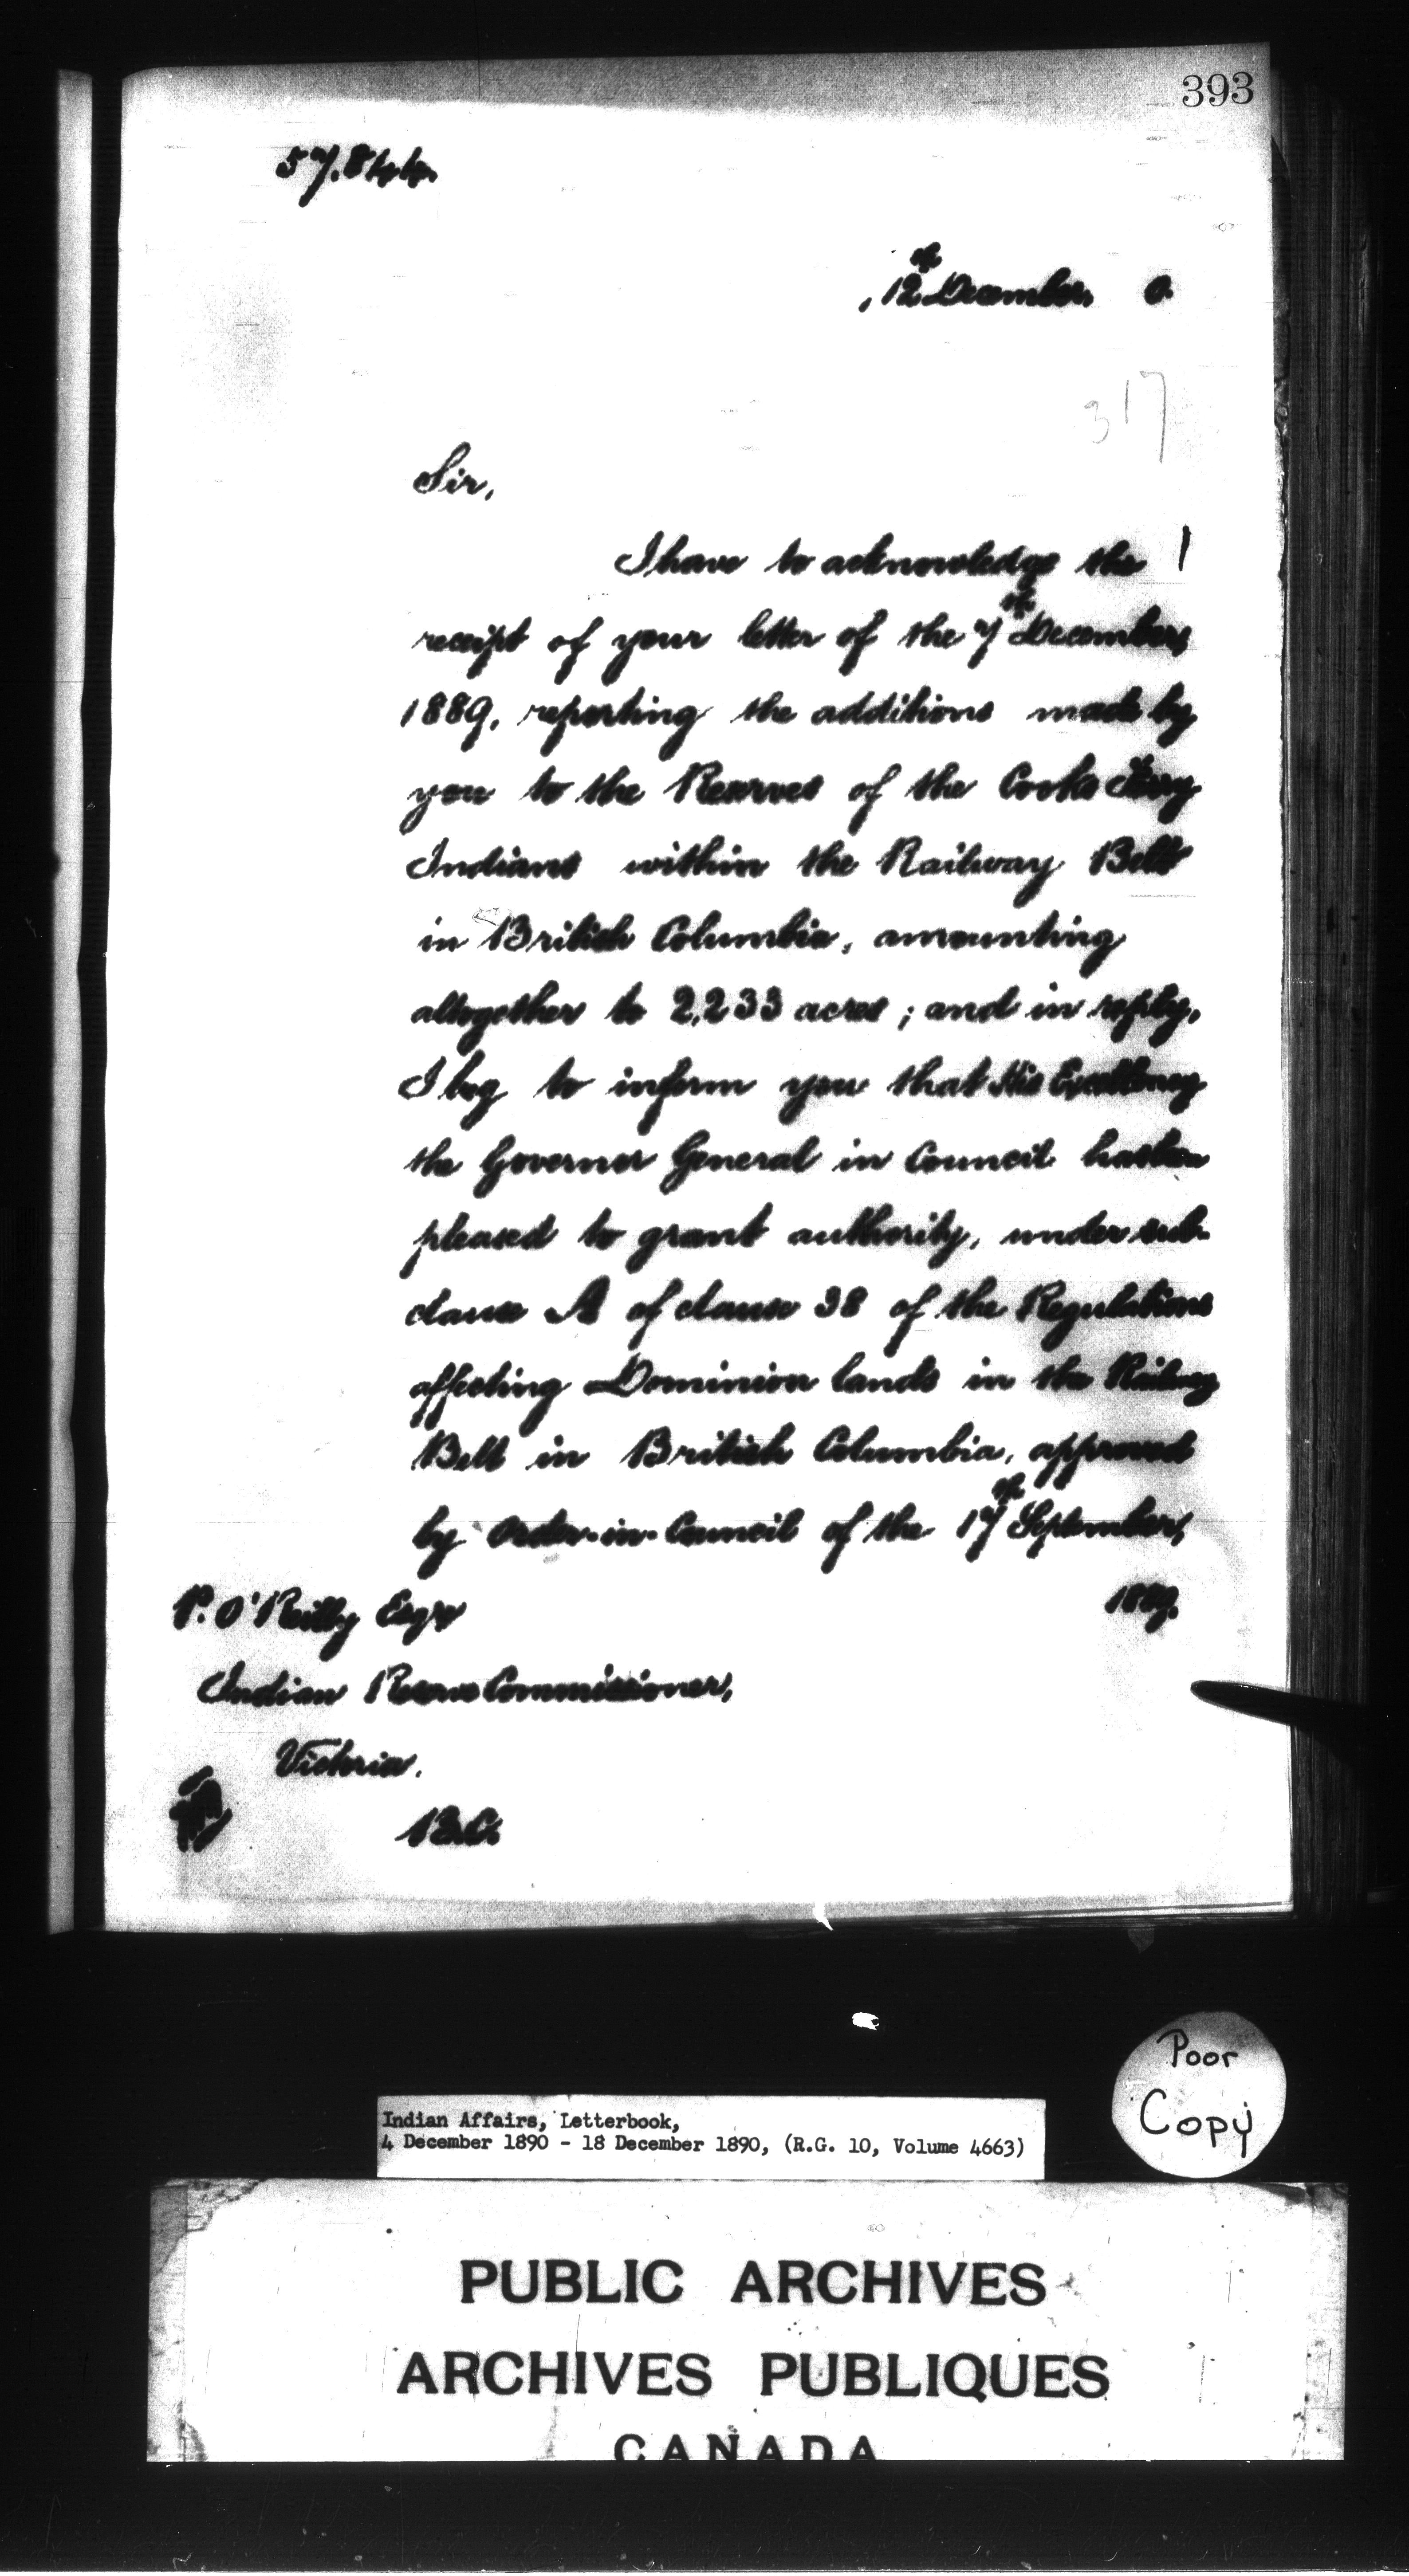 393
57,844.
12th December, 0.
317
Sir,
I have to acknowledge the
receipt of your letter of the 7th December,
1889, reporting the additions made by
you to the Reserves of the Cooks Ferry
Indians within the Railway Belt
in British Columbia, amounting
altogether to 2,233 acres; and in reply,
I beg to inform you that His Excellency
the Governor General in Council has been
pleased to grant authority, under sub-
clause A of clause 38 of the Regulations
affecting Dominion lands in the Railway
Belt in British Columbia, approved
by Order-in-Council of the 17th September,
1889.
P. O'Reilly Esqre
Indian Reserve Commissioner,
Victoria.
B.C.
Poor
Copy
Indian Affairs, Letterbook,
4 December 1890 - 18 December 1890, (R.G. 10, Volume 4663)
PUBLIC ARCHIVES
ARCHIVES PUBLIQUES
CANADA